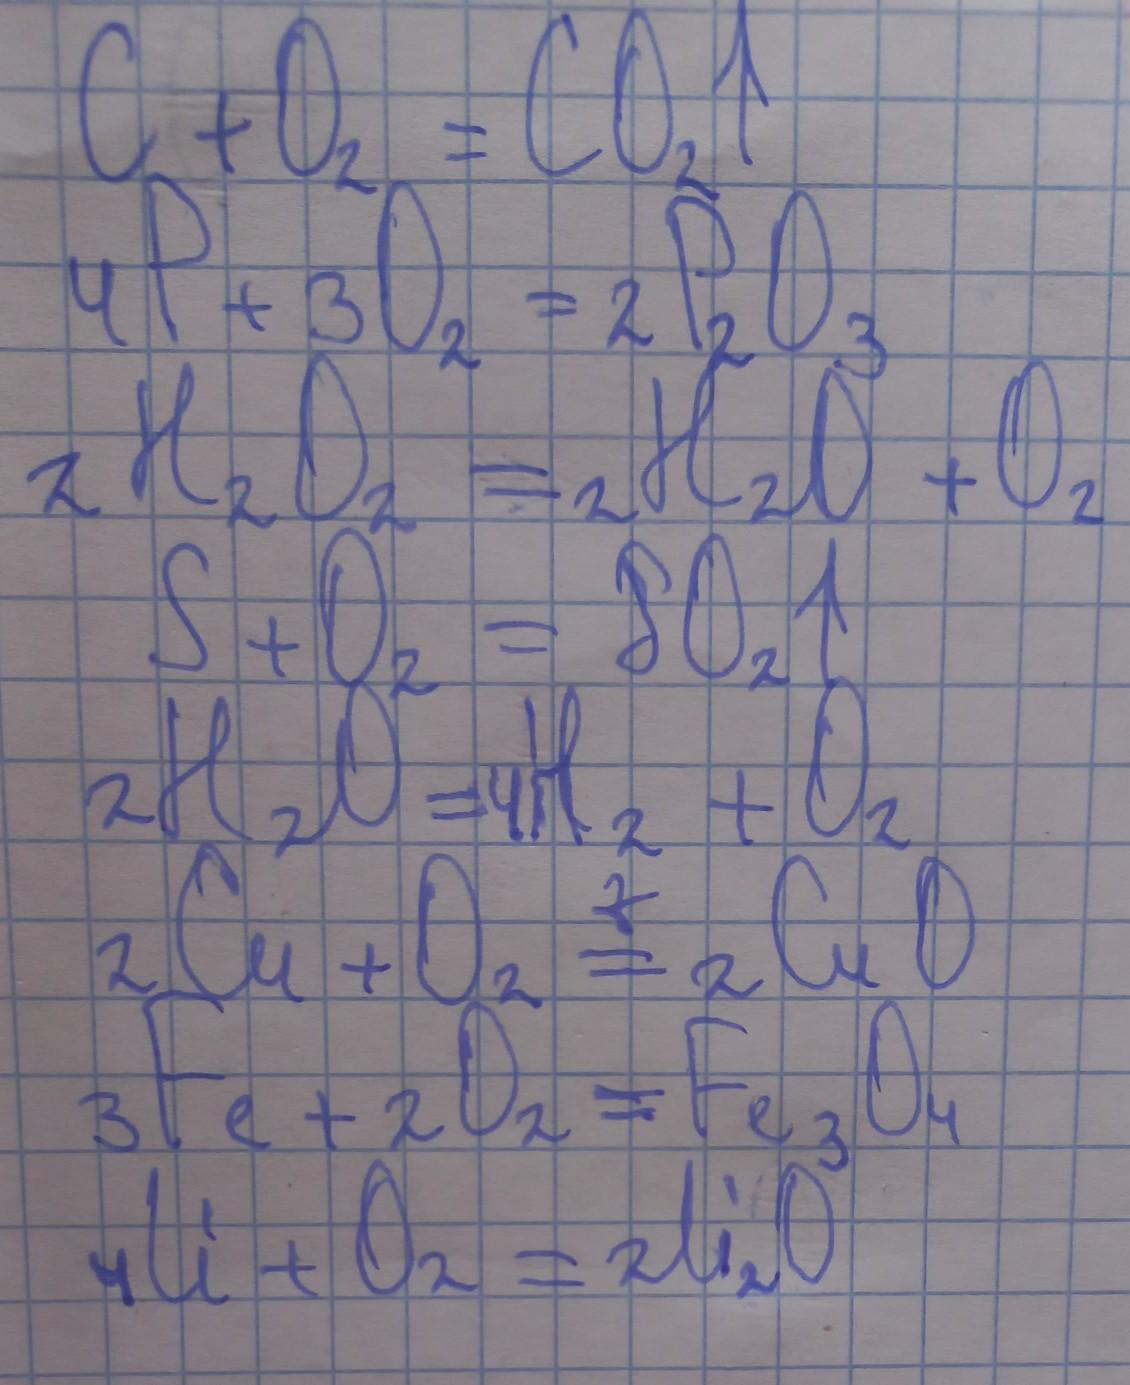 C + O₂ = CO₂↑
4P + 3O₂ = 2P₂O₃
2H₂O₂ = 2H₂O + O₂
S + O₂ = SO₂↑
2H₂O = 4H₂ + O₂
2Cu + O₂ =ᵗ 2CuO
3Fe + 2O₂ = Fe₃O₄
4li + O₂ = 2li₂O